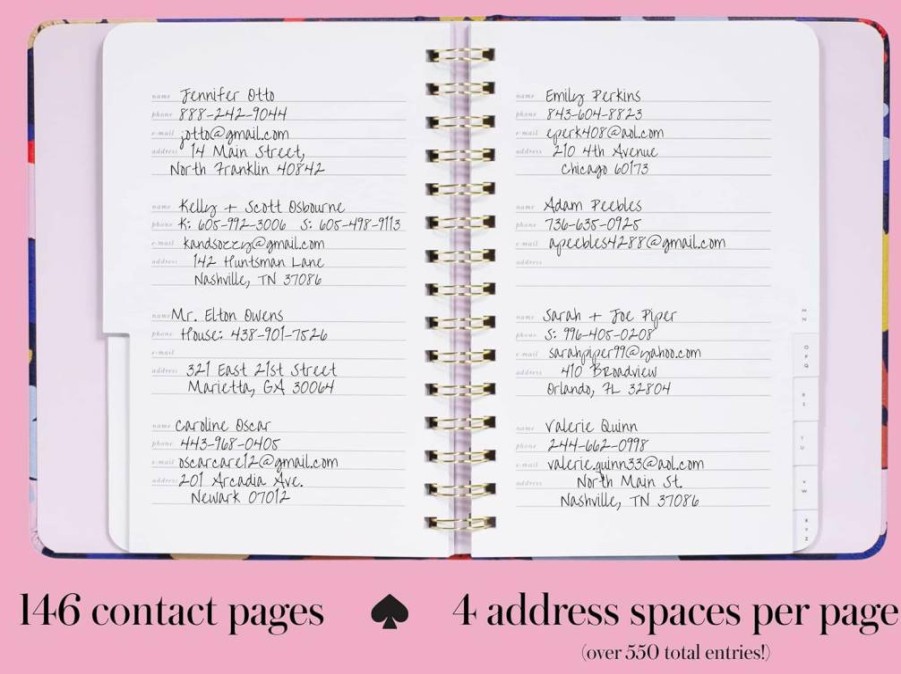 name Jennifer Otto
phone 888-242-9044
e-mail jotto@gmail.com
address 14 Main Street,
North Franklin 40842
name Kelly + Scott Osbourne
phone K: 605-992-3006 S: 605-498-9113
e-mail kandsozzy@gmail.com
address 142 Huntsman Lane
Nashville, TN 37086
name Mr. Elton Owens
phone House: 438-901-7526
e-mail
321 East 21st Street
Marietta, GA 30064
name Caroline Oscar
phone 443-968-0405
e-mail oscarcare12@gmail.com
address 201 Arcadia Ave.
Newark 07012
name Emily Perkins
phone 843-604-8823
e-mail eperk408@aol.com
address 210 4th Avenue
Chicago 60173
name Adam Peebles
phone 736-635-0925
e-mail apeebles4288@gmail.com
address
name Sarah + Joe Piper
phone S: 996-405-0208
e-mail sarahpiper99@yahoo.com
address 410 Broadview
Orlando, FL 32804
name Valerie Quinn
phone 244-662-0998
e-mail valerie.quinn33@aol.com
address North Main St.
Nashville, TN 37086
146 contact pages
4 address spaces per page
(over 550 total entries!)